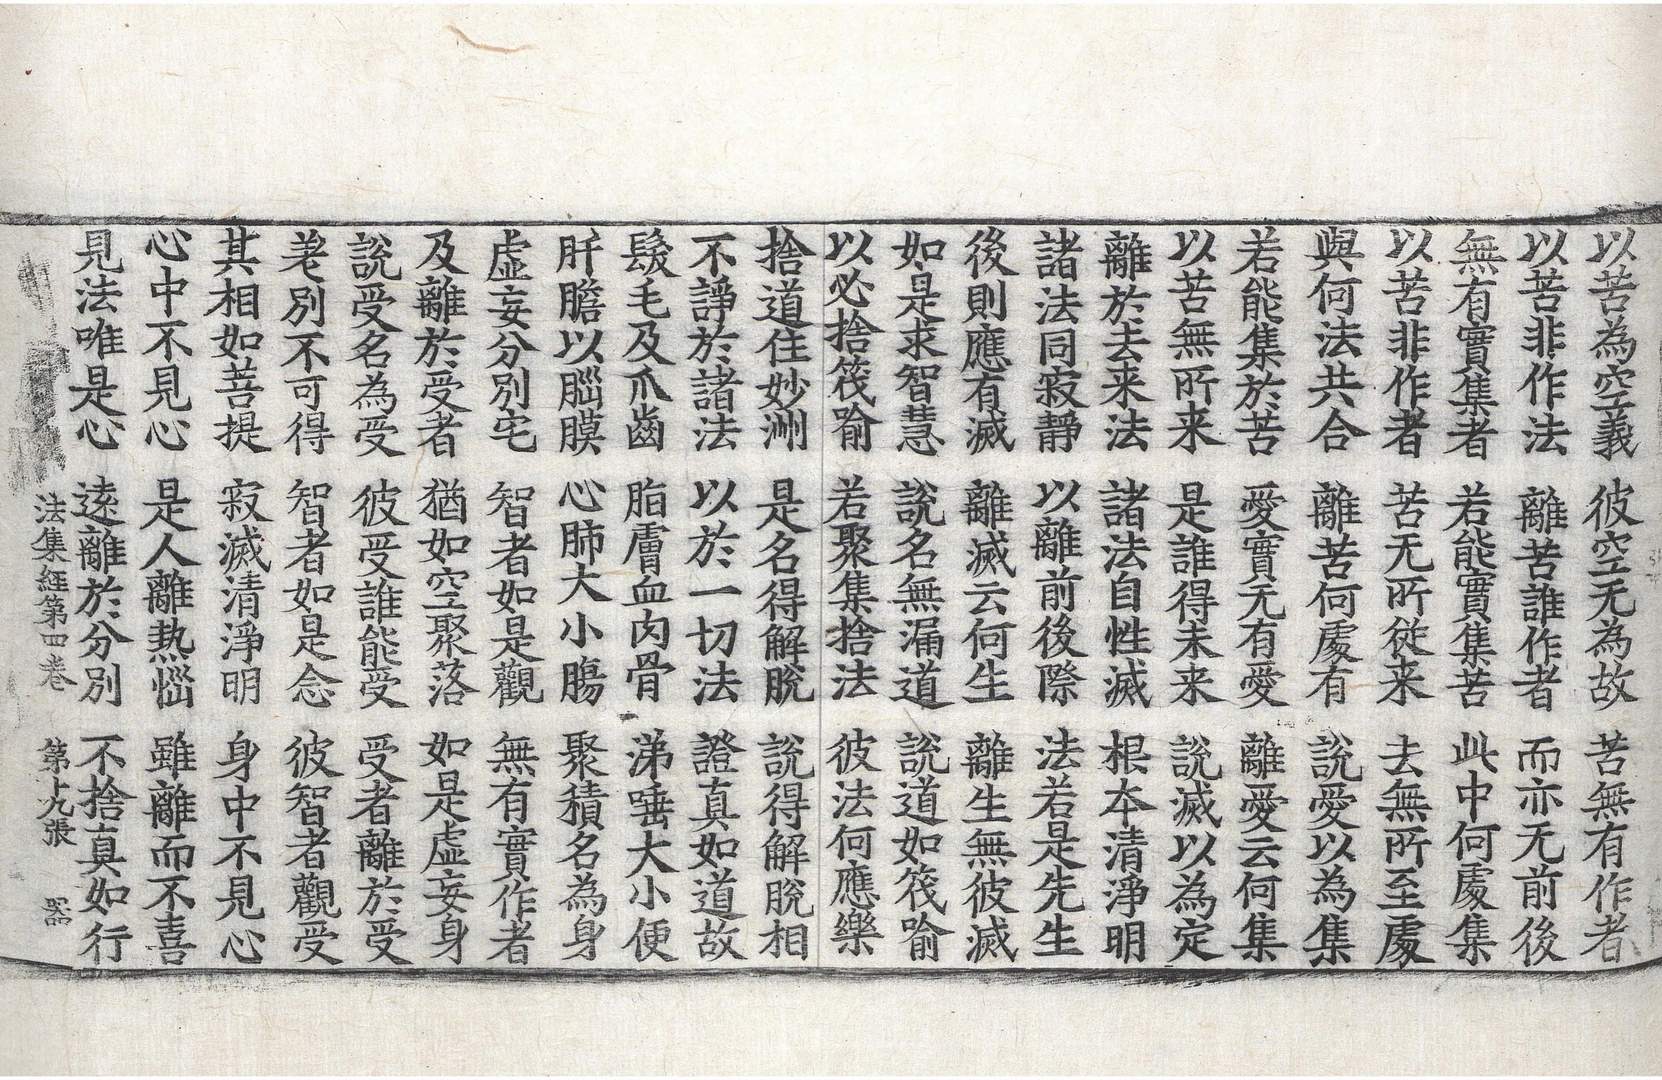 以苦為空義　彼空无為故　苦無有作者
以苦非作法　離苦誰作者　而亦无前後
無有實集者　若能實集苦　此中何處集
以苦非作者　苦无所從来　去無所至處
與何法共合　離苦何處有　說愛以為集
若能集於苦　愛實无有愛　離愛云何集
以苦無所来　是誰得未来　說滅以為定
離於去来法　諸法自性滅　根本清淨明
諸法同寂靜　以離前後際　法若是先生
後則應有滅　離滅云何生　離生無彼滅
如是求智慧　說名無漏道　說道如筏喻
以必捨筏喻　若聚集捨法　彼法何應樂
捨道住妙洲　是名得解脫　說得解脫相
不諍於諸法　以於一切法　證真如道故
髮毛及爪齒　脂膚血肉骨　涕唾大小便
肝膽以腦膜　心肺大小腸　聚積名為身
虛妄分別宅　智者如是觀　無有實作者
及離於受者　猶如空聚落　如是虛妄身
說受名為受　彼受誰能受　受者離於受
差別不可得　智者如是念　彼智者觀受
其相如菩提　寂滅清淨明　身中不見心
心中不見心　是人離熱惱　雖離而不喜
見法唯是心　遠離於分別　不捨真如行
法集經第四卷　第十九張　器